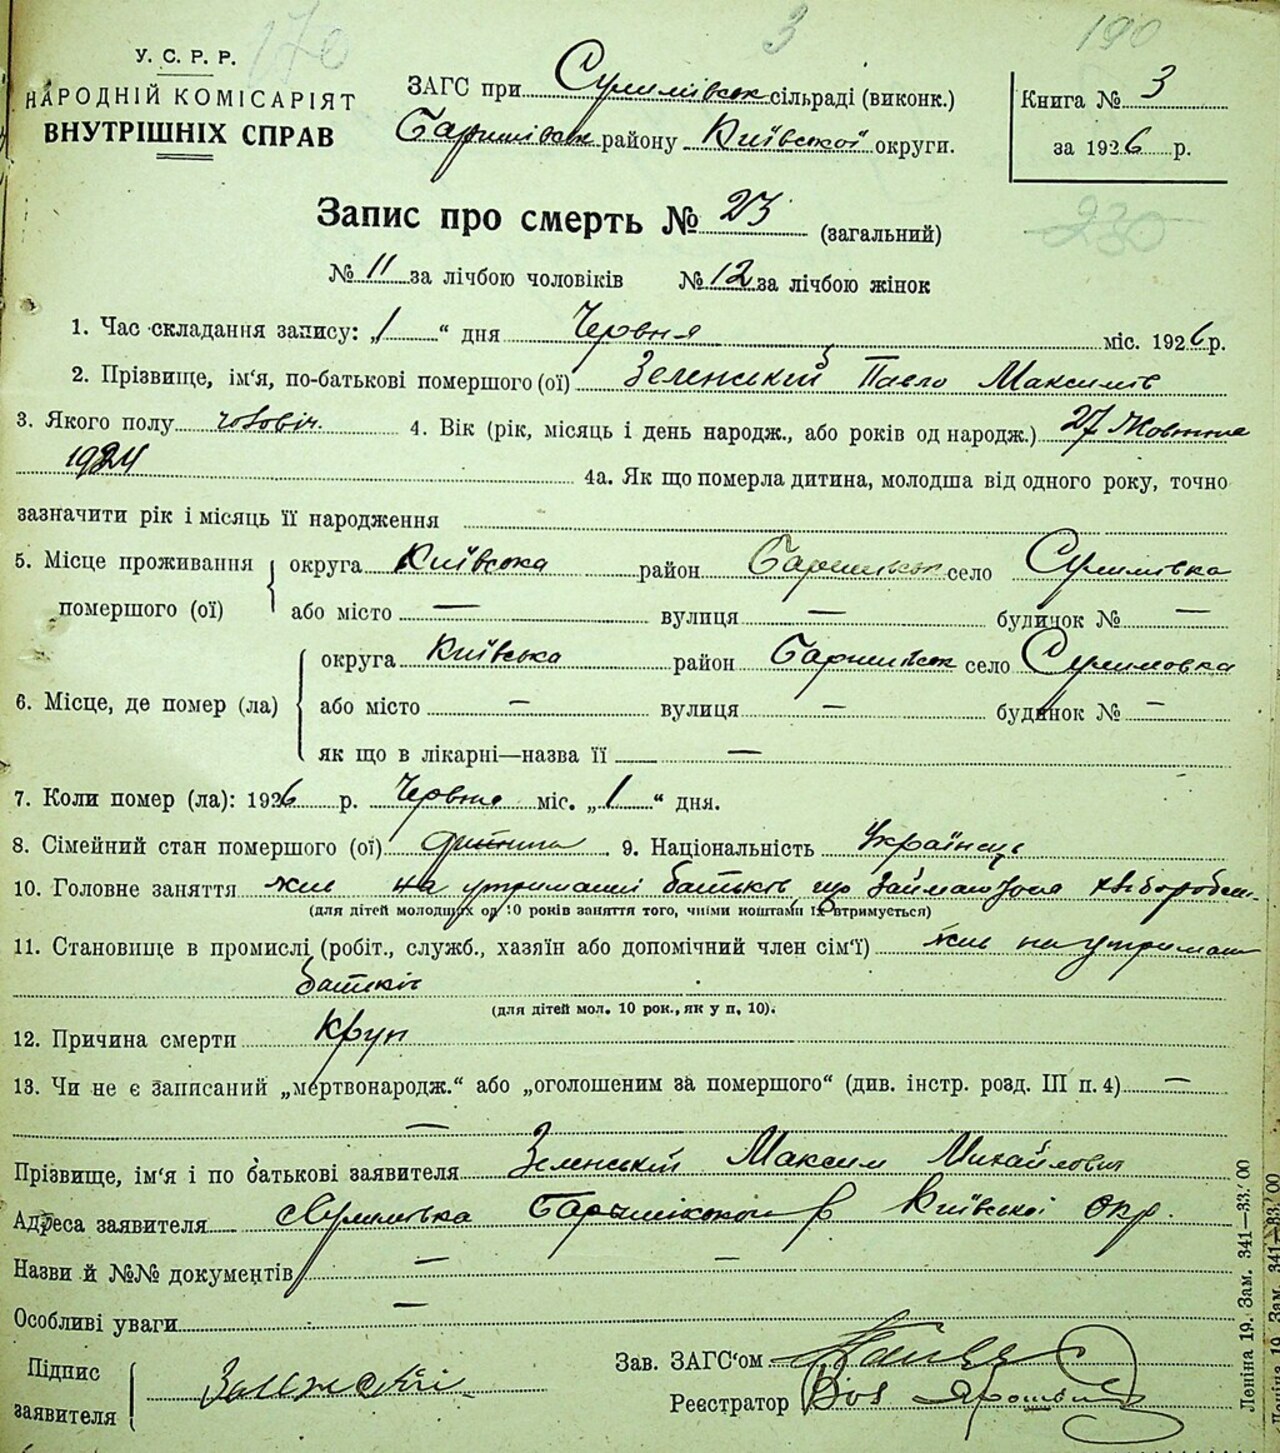 170 3 190
У. С. Р. Р.
НАРОДНІЙ КОМІСАРІЯТ
ВНУТРІШНІХ СПРАВ
ЗАГС при Сулимівськ сільраді (виконк.)
Баришівськ району Київської округи.
Книга № 3
за 1926 р.
230
Запис про смерть № 23 (загальний)
№ 11 за лічбою чоловіків № 12 за лічбою жінок
1. Час складання запису: „1“ дня Червня міс. 1926 р.
2. Прізвище, ім'я, по-батькові помершого (ої) Зеленський Павло Максимів
3. Якого полу чоловіч. 4. Вік (рік, місяць і день народж., або років од народж.) 27 Жовтня
1924 4а. Як що померла дитина, молодша від одного року, точно
зазначити рік і місяць її народження
5. Місце проживання помершого (ої) округа Київська район Баришівськ село Сулимівка
або місто — вулиця — будинок № —
6. Місце, де помер (ла) округа Київська район Баришівськ село Сулимовка
або місто — вулиця — будинок № —
як що в лікарні—назва її —
7. Коли помер (ла): 1926 р. Червня міс. „1“ дня.
8. Сімейний стан помершого (ої) дитина 9. Національність Українець
10. Головне заняття жив на утриманні батьків, що займаються хліборобст.
(для дітей молодших од 10 років заняття того, чиїми коштами їх втримується)
11. Становище в промислі (робіт., служб., хазяїн або допомічний член сім'ї) жив на утриман
батьків
(для дітей мол. 10 рок., як у п. 10).
12. Причина смерти Круп
13. Чи не є записаний „мертвонародж.“ або „оголошеним за помершого“ (див. інстр. розд. III п. 4) —
—
Прізвище, ім'я і по батькові заявителя Зеленський Максим Михайлович
Адреса заявителя Сулимівка Баришівського р Київської окр.
Назви й №№ документів — —
Особливі уваги —
Підпис заявителя Зеленский
Зав. ЗАГС'ом
Реєстратор
Леніна 19. Зам. 341—33.' 00
Леніна 19. Зам. 341—33.' 00